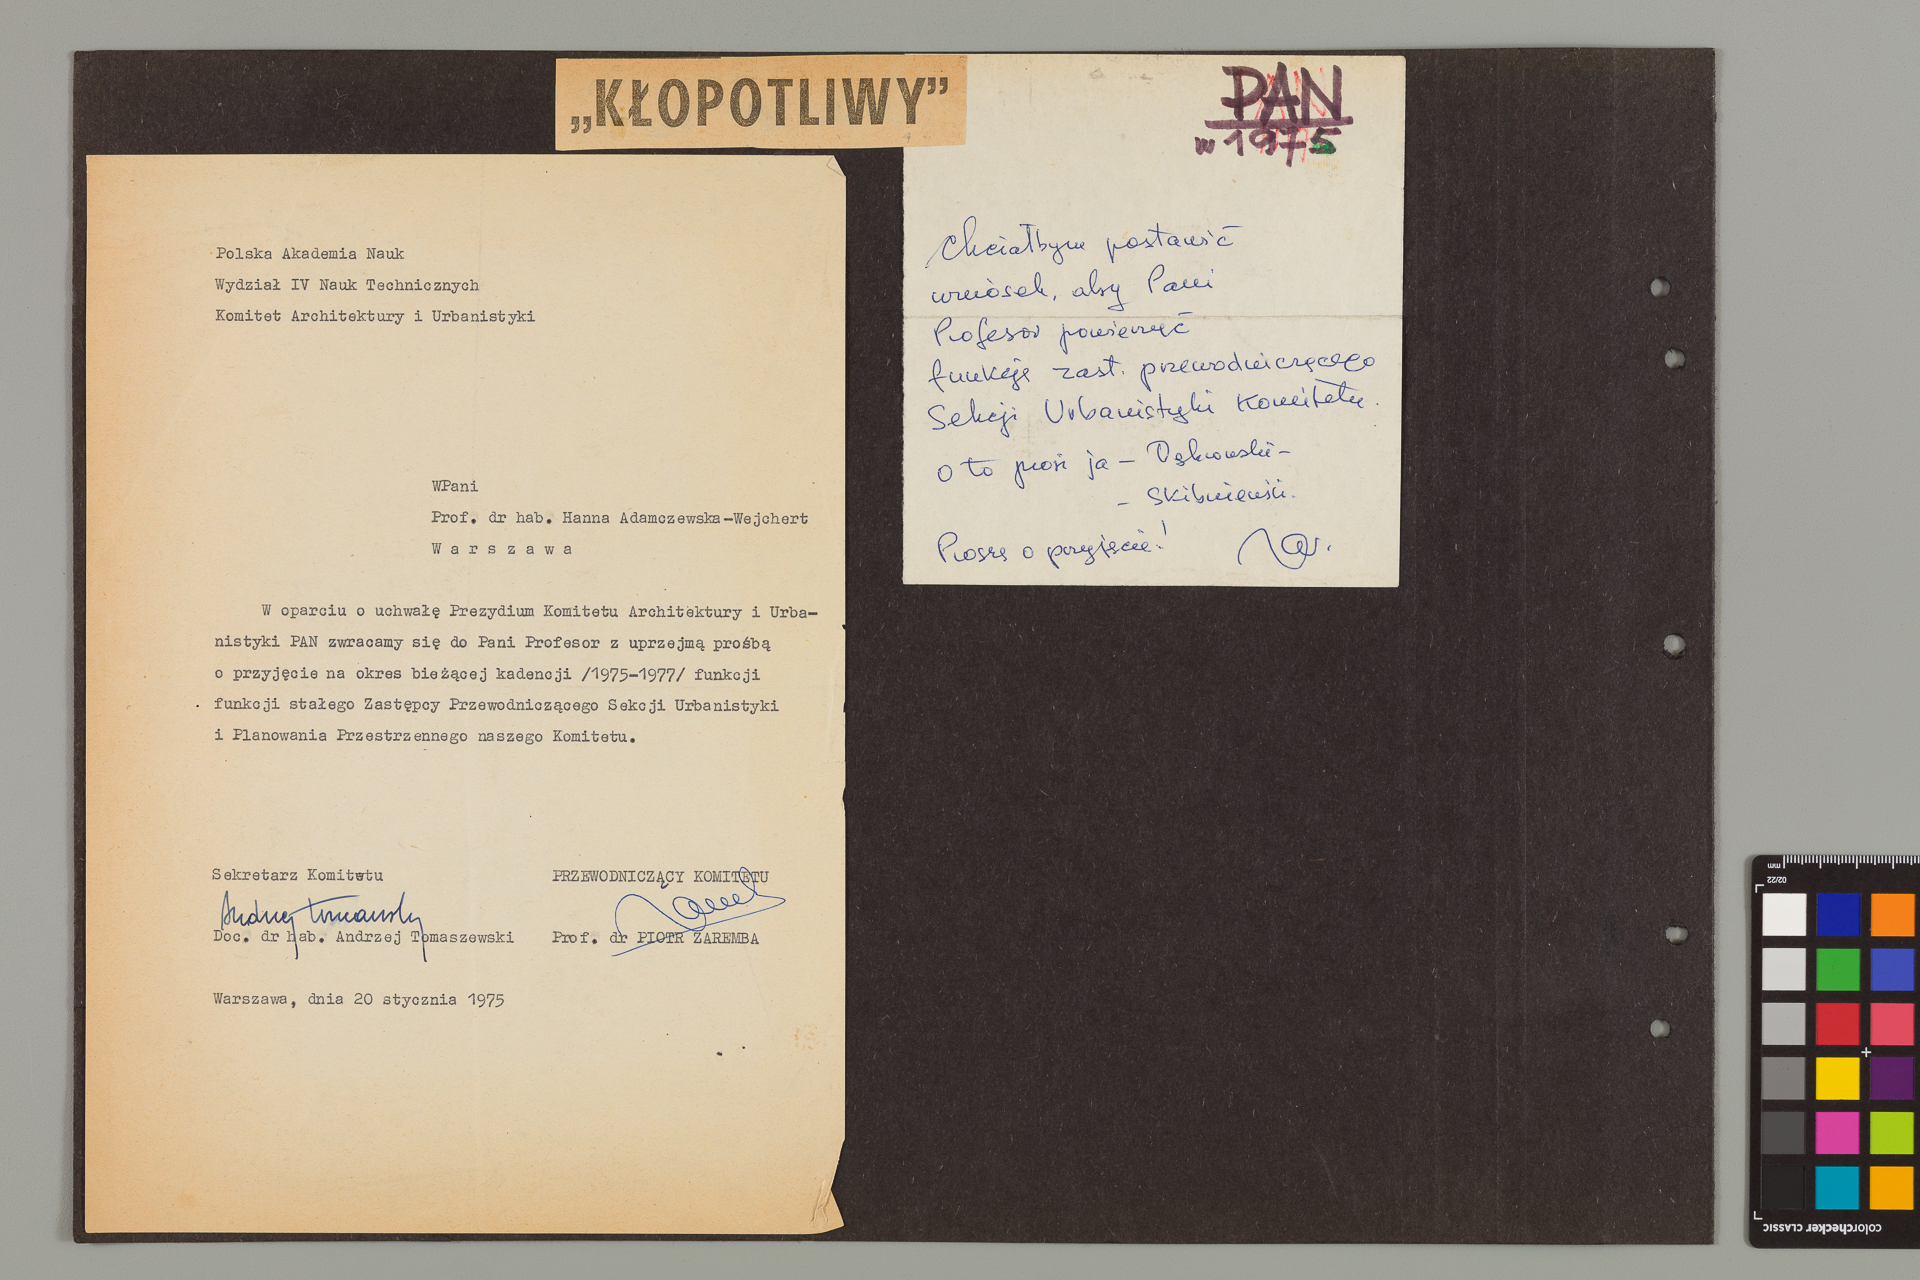 „KŁOPOTLIWY”
PAN
w 1975
Polska Akademia Nauk
Wydział IV Nauk Technicznych
Komitet Architektury i Urbanistyki
WPani
Prof. dr hab. Hanna Adamczewska-Wejchert
W a r s z a w a
W oparciu o uchwałę Prezydium Komitetu Architektury i Urba-
nistyki PAN zwracamy się do Pani Profesor z uprzejmą prośbą
o przyjęcie na okres bieżącej kadencji /1975-1977/ funkcji
funkcji stałego Zastępcy Przewodniczącego Sekcji Urbanistyki
i Planowania Przestrzennego naszego Komitetu.
Sekretarz Komitetu
Doc. dr hab. Andrzej Tomaszewski
PRZEWODNICZĄCY KOMITETU
Prof. dr PIOTR ZAREMBA
Warszawa, dnia 20 stycznia 1975
Chciałbym postawić
wniosek, aby Pani
Profesor powierzyć
funkcję zast. przewodniczącego
Sekcji Urbanistyki Komitetu.
O to prosi ja –
– Skibniewski.
Proszę o przyjęcie!
mm
02/22
colorchecker CLASSIC